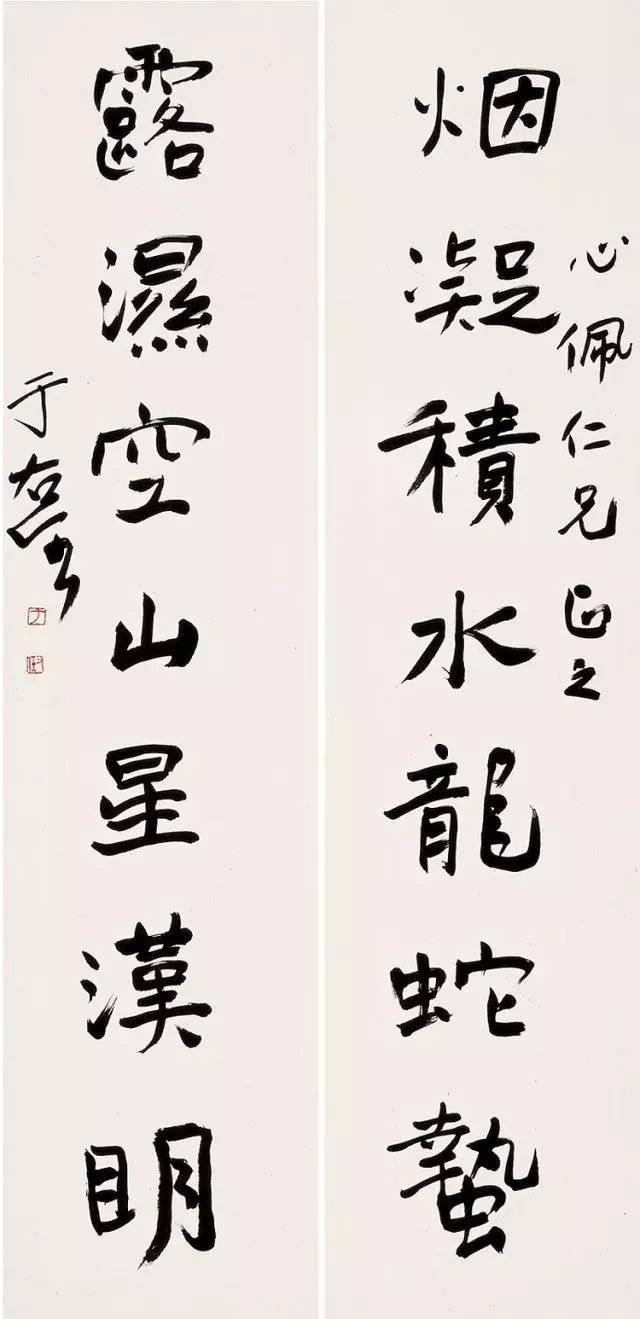 心佩仁兄正之
烟凝積水龍蛇蟄
露濕空山星漢明
于右任